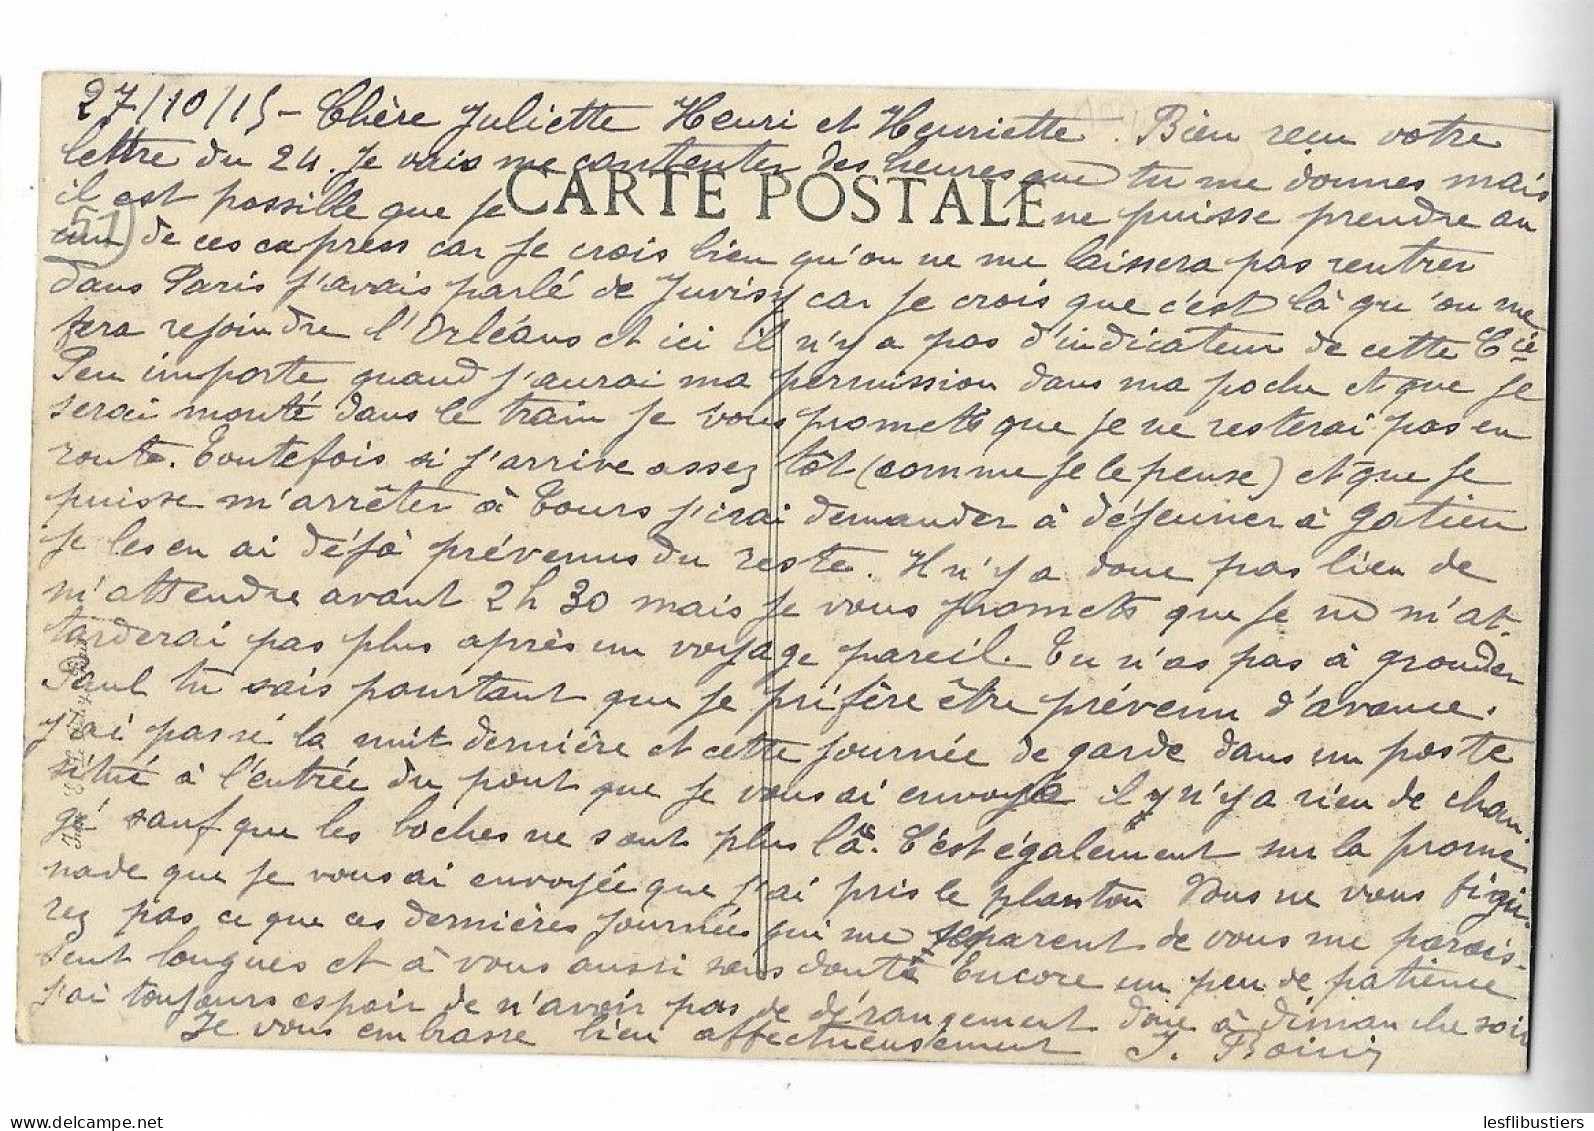 27/10/15 - Chère Juliette Henri et Henriette. Bien reçu votre
lettre du 24. Je vais me contenter des heures que tu me donnes mais
CARTE POSTALE
il est possible que je ne puisse prendre au
(51)
un de ces express car je crois bien qu'on ne me laissera pas rentrer
dans Paris j'avais parlé de Juvisy car je crois que c'est là qu'on me
fera rejoindre l'Orléans et ici il n'y a pas d'indicateur de cette Cie
Peu importe quand j'aurai ma permission dans ma poche et que je
serai monté dans le train je vous promets que je ne resterai pas en
route. Toutefois si j'arrive assez tôt (comme je le pense) et que je
puisse m'arrêter à Tours j'irai demander à déjeuner à Gatien
je les en ai déjà prévenus du reste. Il n'y a donc pas lieu de
m'attendre avant 2h30 mais je vous promets que je ne m'at-
tarderai pas plus après un voyage pareil. Tu n'as pas à gronder
Paul tu sais pourtant que je préfère être prévenu d'avance.
j'ai passé la nuit dernière et cette journée de garde dans un poste
situé à l'entrée du pont que je vous ai envoyé il n'y a rien de chan-
gé sauf que les boches ne sont plus là. C'est également sur la prome-
nade que je vous ai envoyée que j'ai pris le planton Vous ne vous figu-
rez pas ce que ces dernières journées qui me séparent de vous me parais-
sent longues et à vous aussi sans doute Encore un peu de patience
j'ai toujours espoir de n'avoir pas de dérangement donc à dimanche soir
Je vous embrasse bien affectueusement J.
lesflibustiers